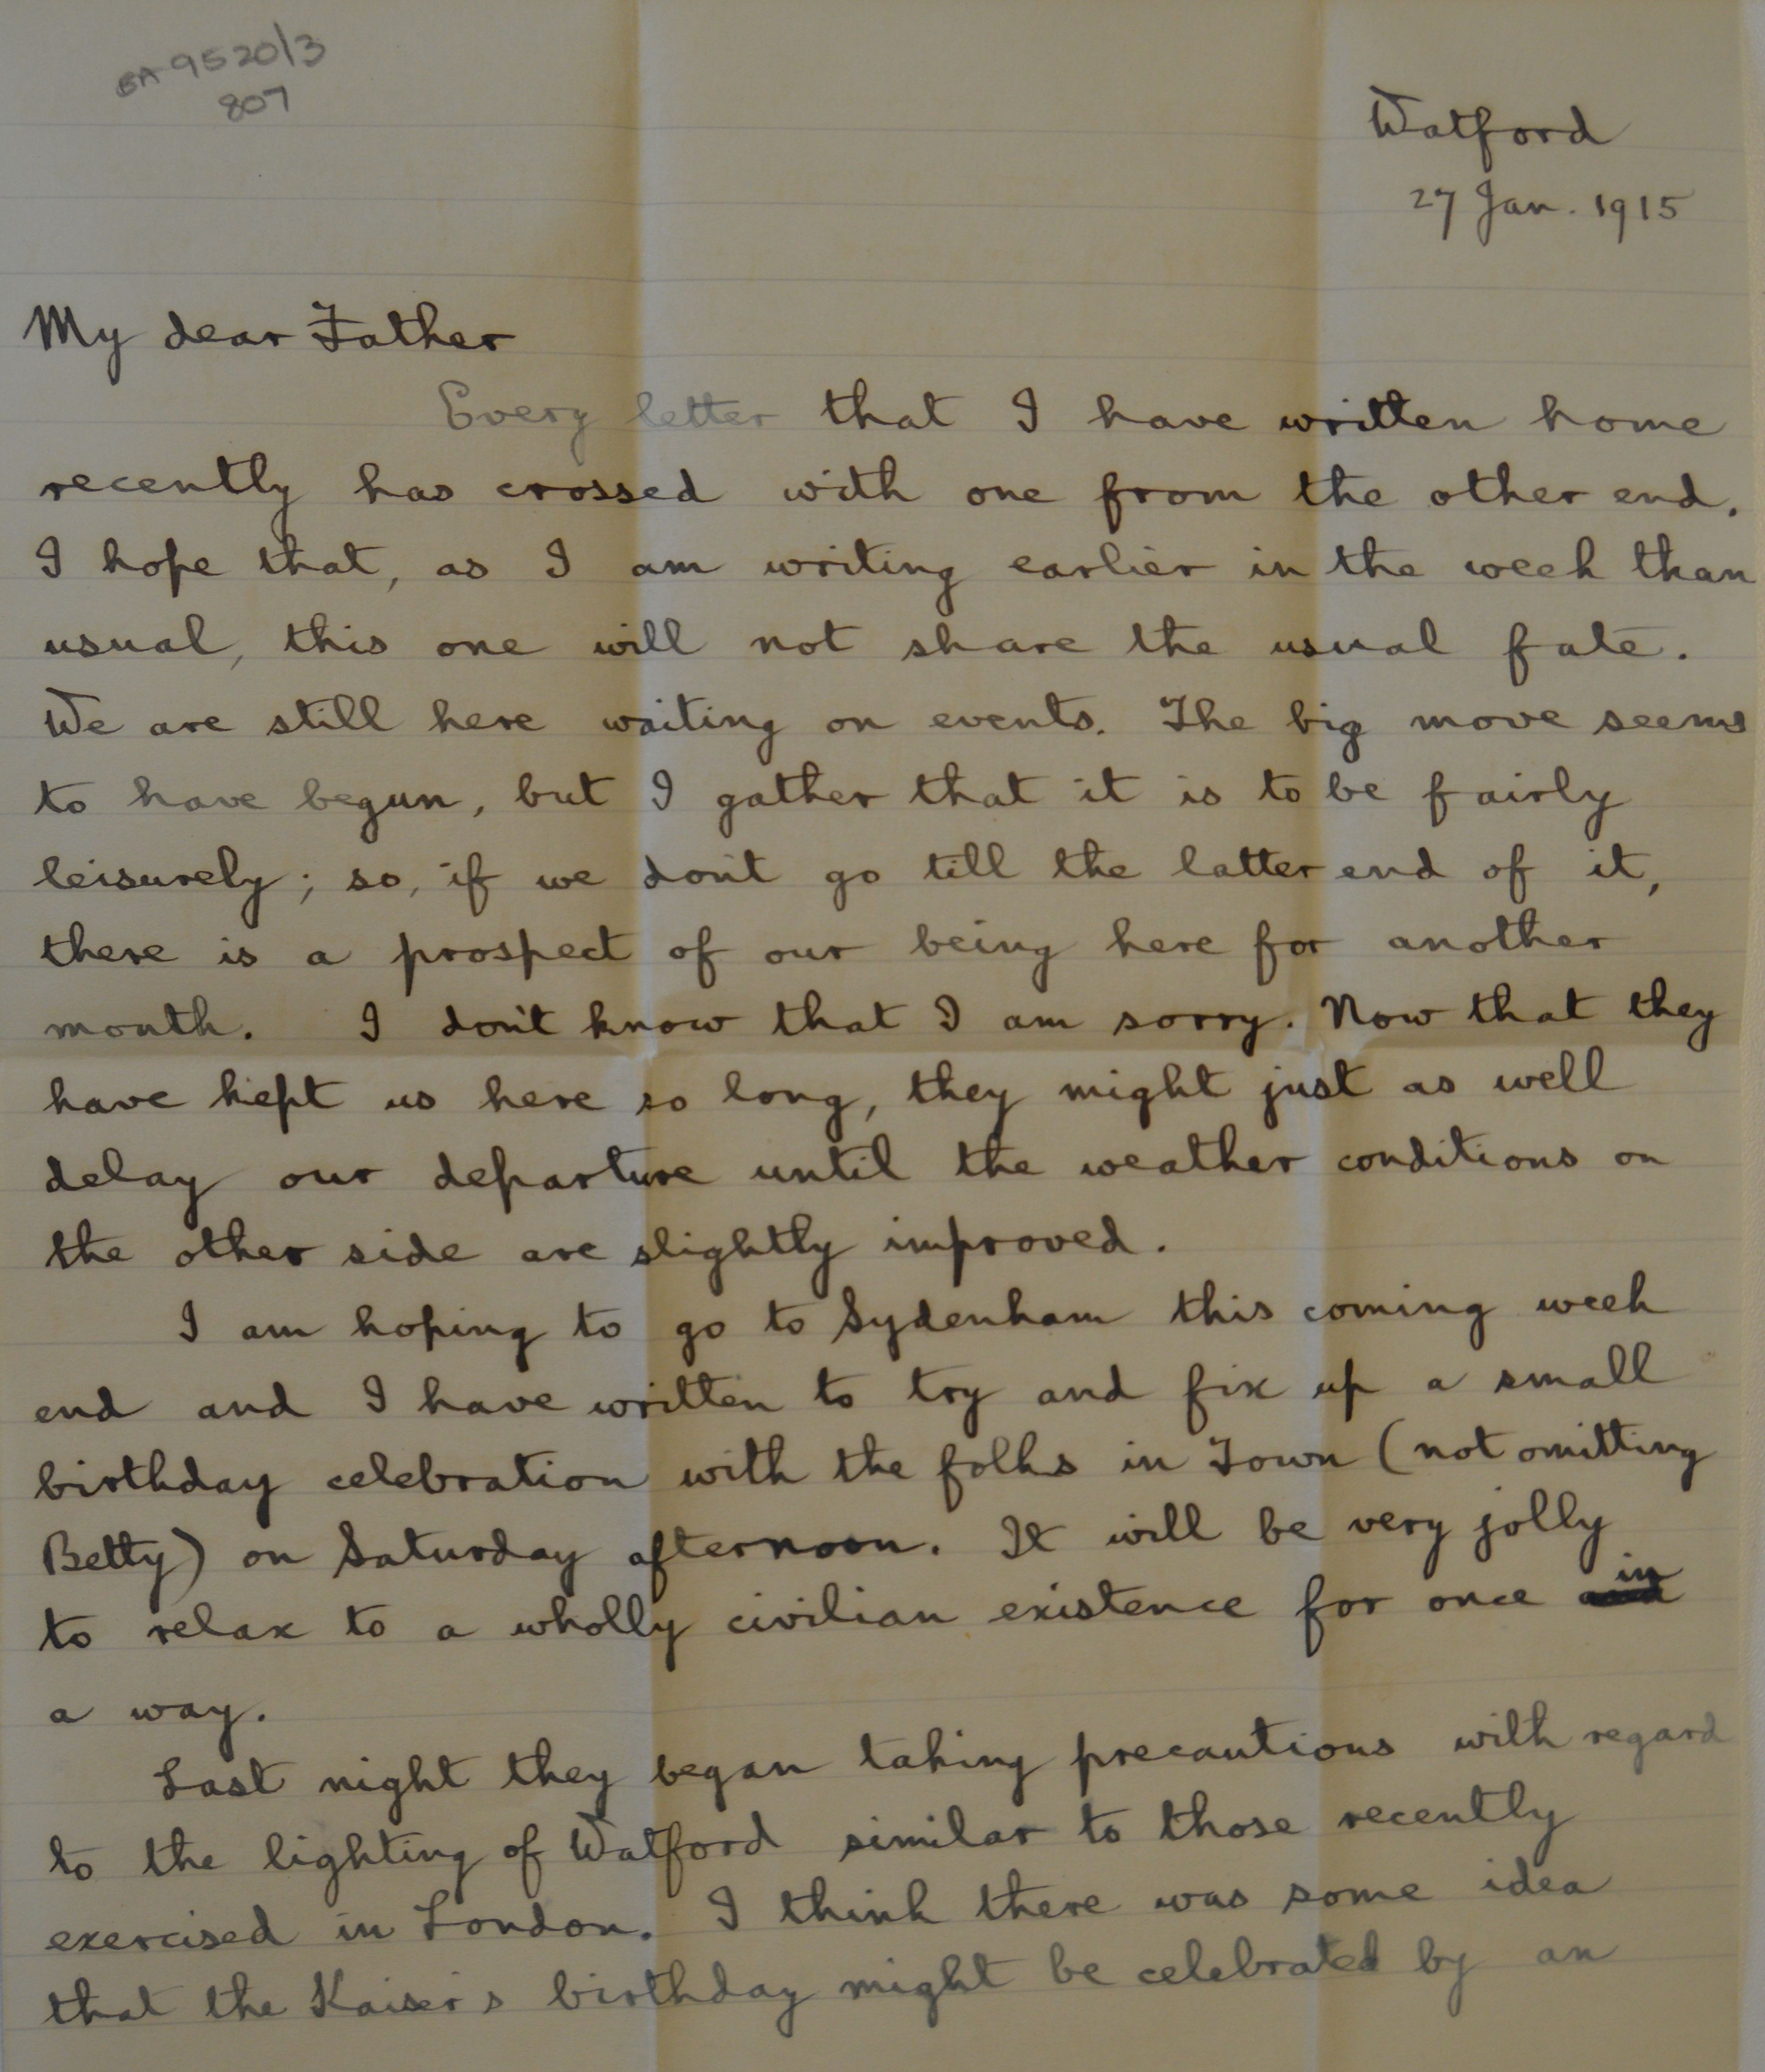 BA 9520/3
807
Watford
27 Jan. 1915
My dear Father
Every letter that I have written home
recently has crossed with one from the other end.
I hope that, as I am writing earlier in the week than
usual, this one will not share the usual fate.
We are still here waiting on events. The big move seems
to have begun, but I gather that it is to be fairly
leisurely; so, if we don't go till the latter end of it,
there is a prospect of our being here for another
month. I don't know that I am sorry. Now that they
have kept us here so long, they might just as well
delay our departure until the weather conditions on
the other side are slightly improved.
I am hoping to go to Sydenham this coming week
end and I have written to try and fix up a small
birthday celebration with the folks in Town (not omitting
Betty) on Saturday afternoon. It will be very jolly
to relax to a wholly civilian existence for once in
a way.
Last night they began taking precautions with regard
to the lighting of Watford similar to those recently
exercised in London. I think there was some idea
that the Kaiser's birthday might be celebrated by an